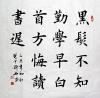 黑髮不知
勤學早白
首方悔讀
書遲